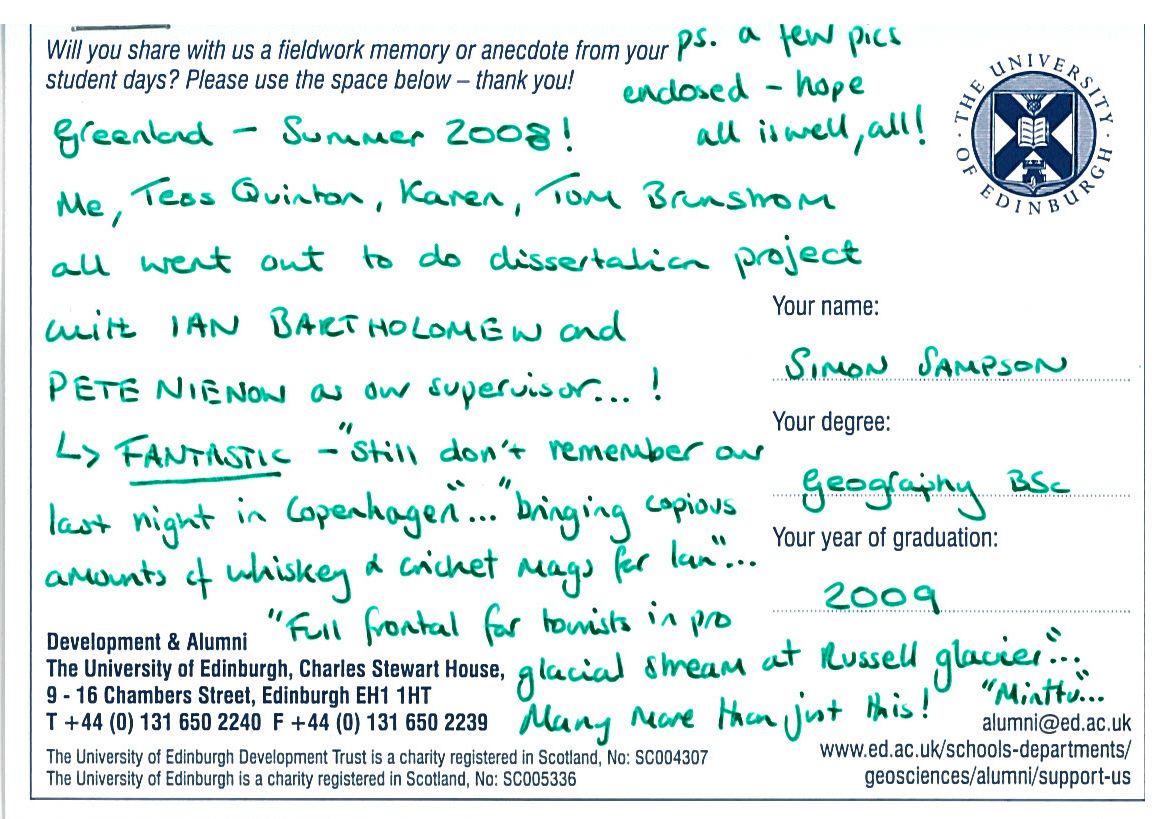 Will you share with us a fieldwork memory or anecdote from your
student days? Please use the space below – thank you!
ps. a few pics
enclosed - hope
all is well, all!
THE UNIVERSITY OF EDINBURGH
Greenland - Summer 2008!
Me, Tess Quinton, Karen, Tom Brunstrom
all went out to do dissertation project
with IAN BARTHOLOMEW and
PETE NIENOW as our supervisor...!
↳ FANTASTIC - "Still don't remember our
last night in Copenhagen"... "bringing copious
amounts of whiskey & cricket mags for Ian"...
"Full frontal for tourists in pro
glacial stream at Russell glacier"...
"Minttu"...
Many more than just this!
Your name:
SIMON SAMPSON
Your degree:
Geography BSc
Your year of graduation:
2009
Development & Alumni
The University of Edinburgh, Charles Stewart House,
9 - 16 Chambers Street, Edinburgh EH1 1HT
T +44 (0) 131 650 2240 F +44 (0) 131 650 2239
The University of Edinburgh Development Trust is a charity registered in Scotland, No: SC004307
The University of Edinburgh is a charity registered in Scotland, No: SC005336
alumni@ed.ac.uk
www.ed.ac.uk/schools-departments/
geosciences/alumni/support-us